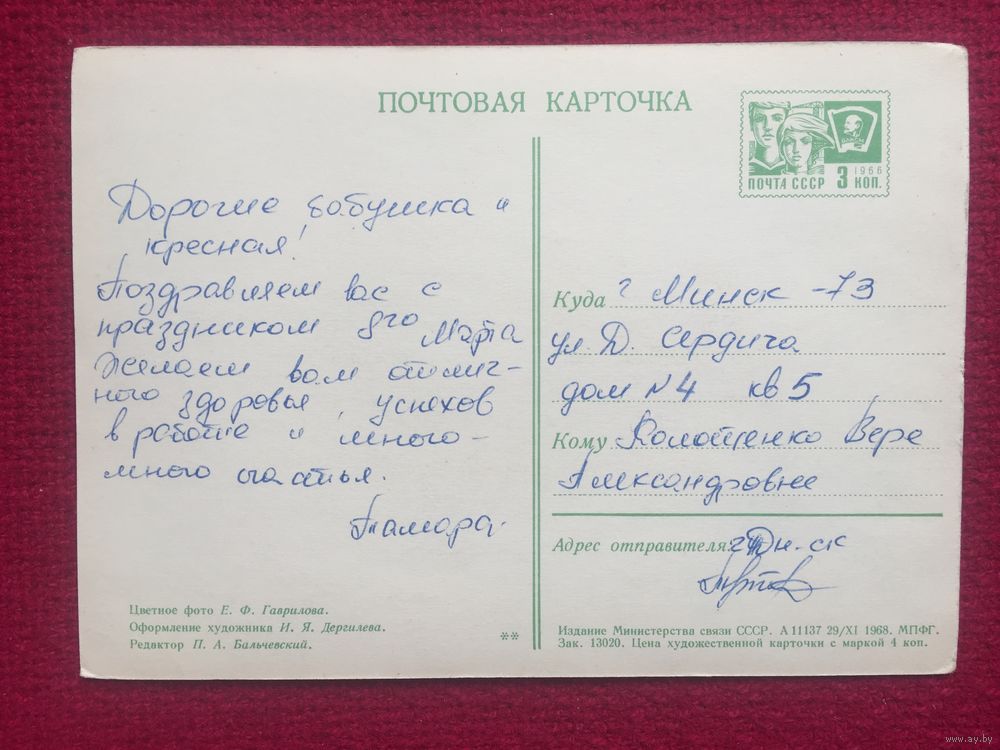 ПОЧТОВАЯ КАРТОЧКА
1966
ПОЧТА СССР 3 КОП.
Дорогие бабушка и
кресная!
Поздравляем вас с
праздником 8го Марта
Желаем вам отлич-
ного здоровья, успехов
в работе и много-
много счастья.
Тамара.
Куда г Минск -73
ул. Д. Сердича
дом N4 кв 5
Кому Вере
Александровне
Адрес отправителя:
Цветное фото Е. Ф. Гаврилова.
Оформление художника И. Я. Дергилева.
Редактор П. А. Бальчевский.
**
Издание Министерства связи СССР. А 11137 29/XI 1968. МПФГ.
Зак. 13020. Цена художественной карточки с маркой 4 коп.
www.ay.by